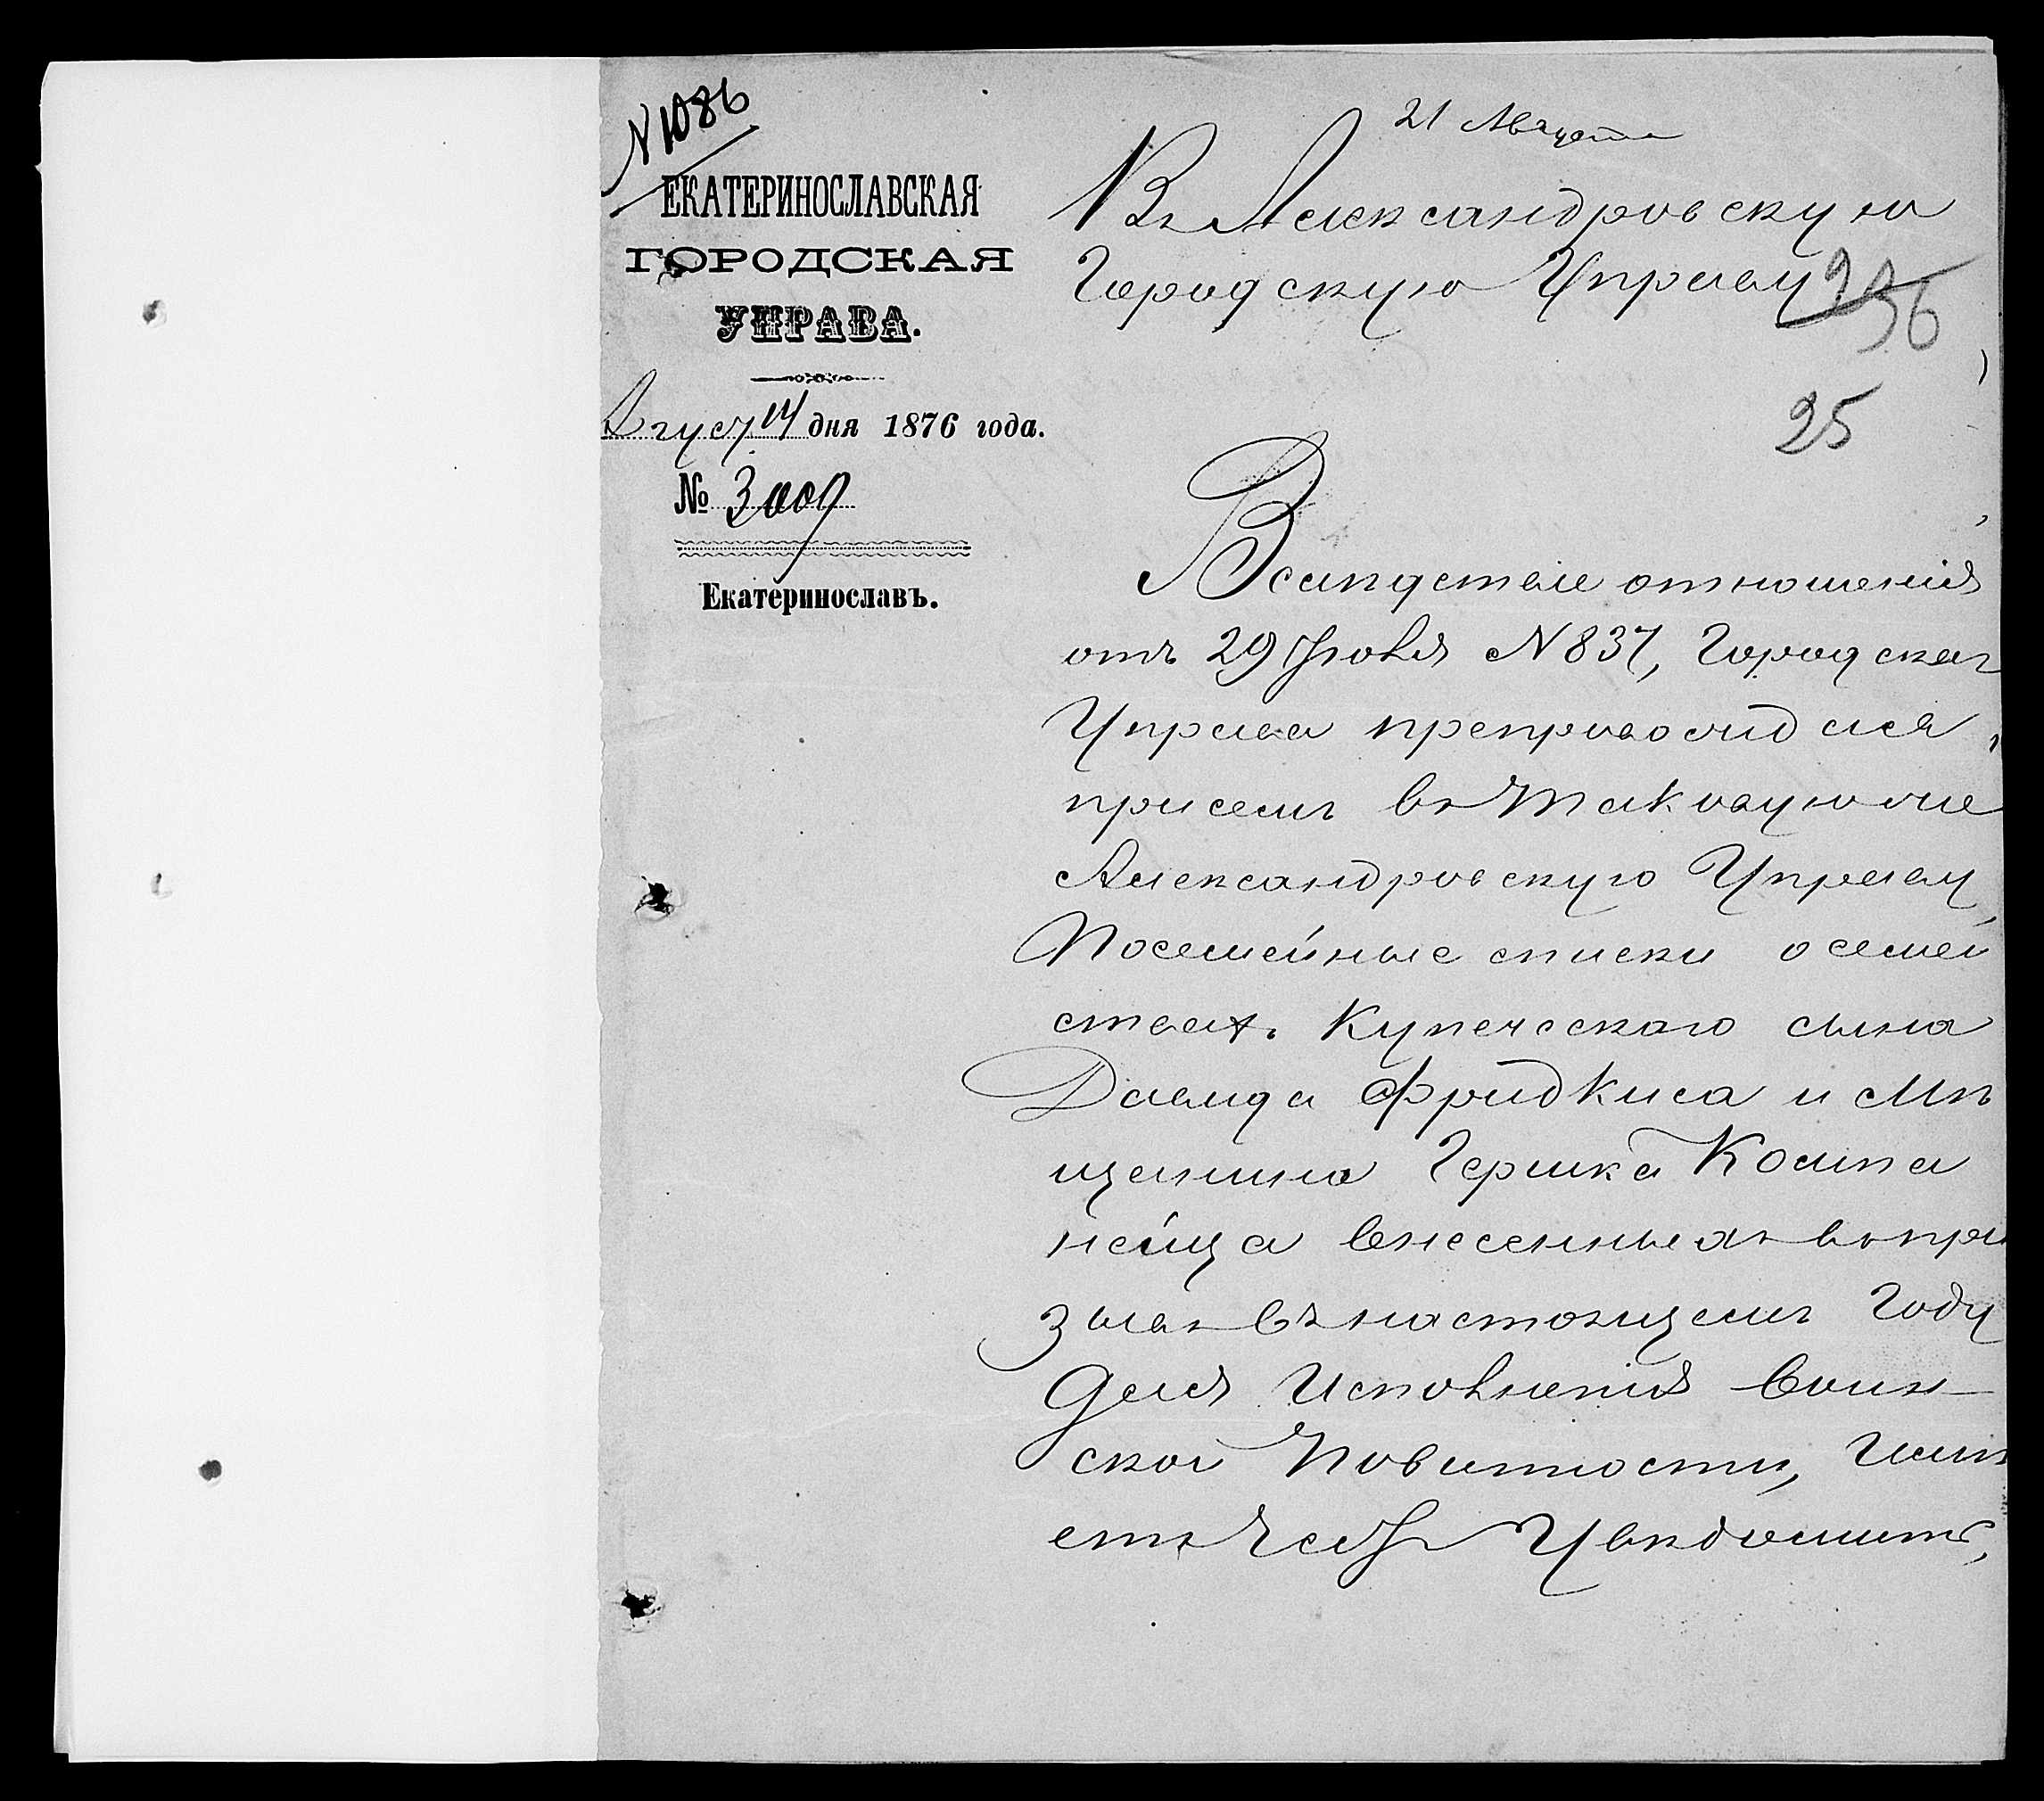 N 1086
21 Августа
ЕКАТЕРИНОСЛАВСКАЯ
ГОРОДСКАЯ
УПРАВА.
Август 14 дня 1876 года.
№ 3009
Екатеринославъ.
Въ Александровскую
Городскую Управу
236
25
Вслѣдствіе отношенія
отъ 29 Іюля N 837, Городская
Управа препровождая
при семъ въ таковую же
Александровскую Управу,
Посемейные списки о семей
ствахъ Купеческаго сына
Давида Фридкиса и Мѣ
щанина Гершка Компа
нейца внесенныхъ въ при
зывъ въ настоящемъ году
для исполнения воин
ской Повинности, имѣ
етъ честь Увѣдомить,